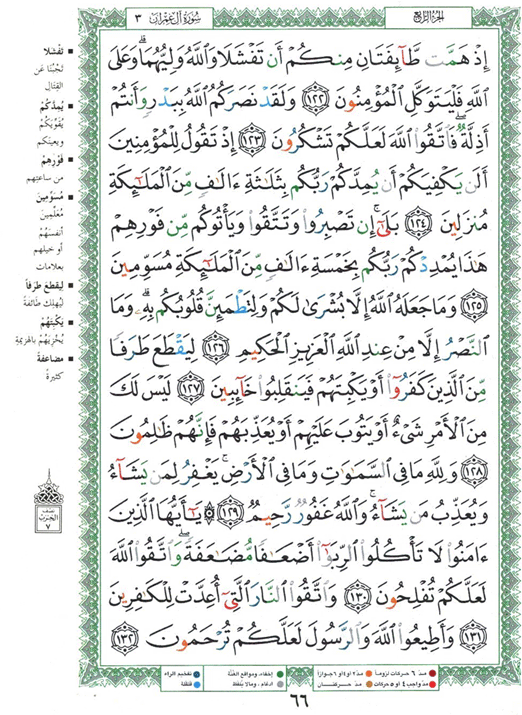 الجزء الرابع
سورة آل عمران ٣
إِذْ هَمَّت طَّآئِفَتَانِ مِنكُمْ أَن تَفْشَلَا وَٱللَّهُ وَلِيُّهُمَا ۗ وَعَلَى
ٱللَّهِ فَلْيَتَوَكَّلِ ٱلْمُؤْمِنُونَ ﴿١٢٢﴾ وَلَقَدْ نَصَرَكُمُ ٱللَّهُ بِبَدْرٍ وَأَنتُمْ
أَذِلَّةٌ ۖ فَٱتَّقُوا۟ ٱللَّهَ لَعَلَّكُمْ تَشْكُرُونَ ﴿١٢٣﴾ إِذْ تَقُولُ لِلْمُؤْمِنِينَ
أَلَن يَكْفِيَكُمْ أَن يُمِدَّكُمْ رَبُّكُم بِثَلَـٰثَةِ ءَالَـٰفٍ مِّنَ ٱلْمَلَـٰٓئِكَةِ
مُنزَلِينَ ﴿١٢٤﴾ بَلَىٰٓ ۚ إِن تَصْبِرُوا۟ وَتَتَّقُوا۟ وَيَأْتُوكُم مِّن فَوْرِهِمْ
هَـٰذَا يُمْدِدْكُمْ رَبُّكُم بِخَمْسَةِ ءَالَـٰفٍ مِّنَ ٱلْمَلَـٰٓئِكَةِ مُسَوِّمِينَ
﴿١٢٥﴾ وَمَا جَعَلَهُ ٱللَّهُ إِلَّا بُشْرَىٰ لَكُمْ وَلِتَطْمَئِنَّ قُلُوبُكُم بِهِۦ ۗ وَمَا
ٱلنَّصْرُ إِلَّا مِنْ عِندِ ٱللَّهِ ٱلْعَزِيزِ ٱلْحَكِيمِ ﴿١٢٦﴾ لِيَقْطَعَ طَرَفًا
مِّنَ ٱلَّذِينَ كَفَرُوٓا۟ أَوْ يَكْبِتَهُمْ فَيَنقَلِبُوا۟ خَآئِبِينَ ﴿١٢٧﴾ لَيْسَ لَكَ
مِنَ ٱلْأَمْرِ شَىْءٌ أَوْ يَتُوبَ عَلَيْهِمْ أَوْ يُعَذِّبَهُمْ فَإِنَّهُمْ ظَـٰلِمُونَ
﴿١٢٨﴾ وَلِلَّهِ مَا فِى ٱلسَّمَـٰوَٰتِ وَمَا فِى ٱلْأَرْضِ ۚ يَغْفِرُ لِمَن يَشَآءُ
وَيُعَذِّبُ مَن يَشَآءُ ۚ وَٱللَّهُ غَفُورٌ رَّحِيمٌ ﴿١٢٩﴾ ۞ يَـٰٓأَيُّهَا ٱلَّذِينَ
ءَامَنُوا۟ لَا تَأْكُلُوا۟ ٱلرِّبَوٰٓا۟ أَضْعَـٰفًا مُّضَـٰعَفَةً ۖ وَٱتَّقُوا۟ ٱللَّهَ
لَعَلَّكُمْ تُفْلِحُونَ ﴿١٣٠﴾ وَٱتَّقُوا۟ ٱلنَّارَ ٱلَّتِىٓ أُعِدَّتْ لِلْكَـٰفِرِينَ
﴿١٣١﴾ وَأَطِيعُوا۟ ٱللَّهَ وَٱلرَّسُولَ لَعَلَّكُمْ تُرْحَمُونَ ﴿١٣٢﴾
■ تَفْشَلا
تَجْبُنَا عَن
القِتَال
■ يُمِدَّكُمْ
يُقَوِّيَكُمْ
ويعينكم
■ فَوْرِهِمْ
من ساعتِهِم
■ مُسَوِّمِينَ
مُعْلِمِينَ
أنفسَهُمْ
أو خيلهم
بعلامات
■ لِيَقْطَعَ طَرَفاً
لِيُهلِك طائفةً
■ يَكْبِتَهُمْ
يُخْزِيَهُمْ بالهزيمة
■ مضاعفةً
كثيرةً
نصف
الحزب
٧
مدّ ٦ حركات لزوماً
مدّ٢ أو٤ أو٦ جوازاً
إخفاء، ومواقع الغُنَّة
تفخيم الراء
مدّ واجب ٤ أو ٥ حركات
مدّ حركتان
إدغام ، ومالا يُلفَظ
قلقلة
٦٦